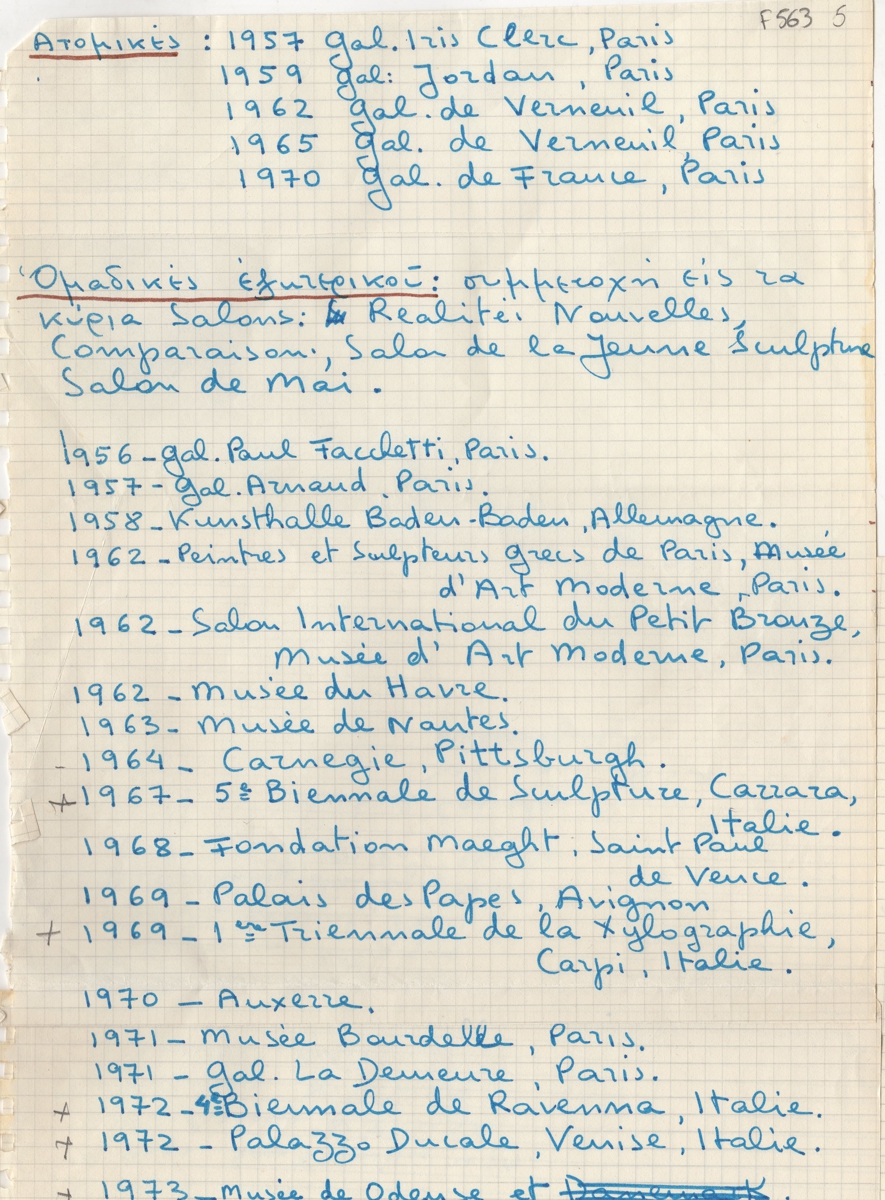 F563 5
Ατομικές : 1957 gal. Iris Clerc, Paris
1959 gal: Jordan, Paris
1962 gal. de Verneuil, Paris
1965 gal. de Verneuil, Paris
1970 gal. de France, Paris
Ὁμαδικές ἐξωτερικοῦ: συμμετοχή εἰς τα
κύρια Salons: Realités Nouvelles,
Comparaison, Salon de la Jeune Sculpture
Salon de Mai.
1956 - gal. Paul Facchetti, Paris.
1957 - Gal. Arnaud, Paris.
1958 - Kunsthalle Baden-Baden, Allemagne.
1962 - Peintres et Sculpteurs grecs de Paris, Musée
d'Art Moderne, Paris.
1962 - Salon International du Petit Bronze,
Musée d'Art Moderne, Paris.
1962 - Musée du Havre.
1963 - Musée de Nantes.
- 1964 - Carnegie, Pittsburgh.
+ 1967 - 5e Biennale de Sculpture, Carrara,
Italie.
1968 - Fondation Maeght, Saint Paul
de Vence.
1969 - Palais des Papes, Avignon
+ 1969 - 1ère Triennale de la Xylographie,
Carpi, Italie.
1970 - Auxerre.
1971 - Musée Bourdelle, Paris.
1971 - gal. La Demeure, Paris.
+ 1972 - 4e Biennale de Ravenna, Italie.
+ 1972 - Palazzo Ducale, Venise, Italie.
+ 1973 - Musée de Odense et Danemark.